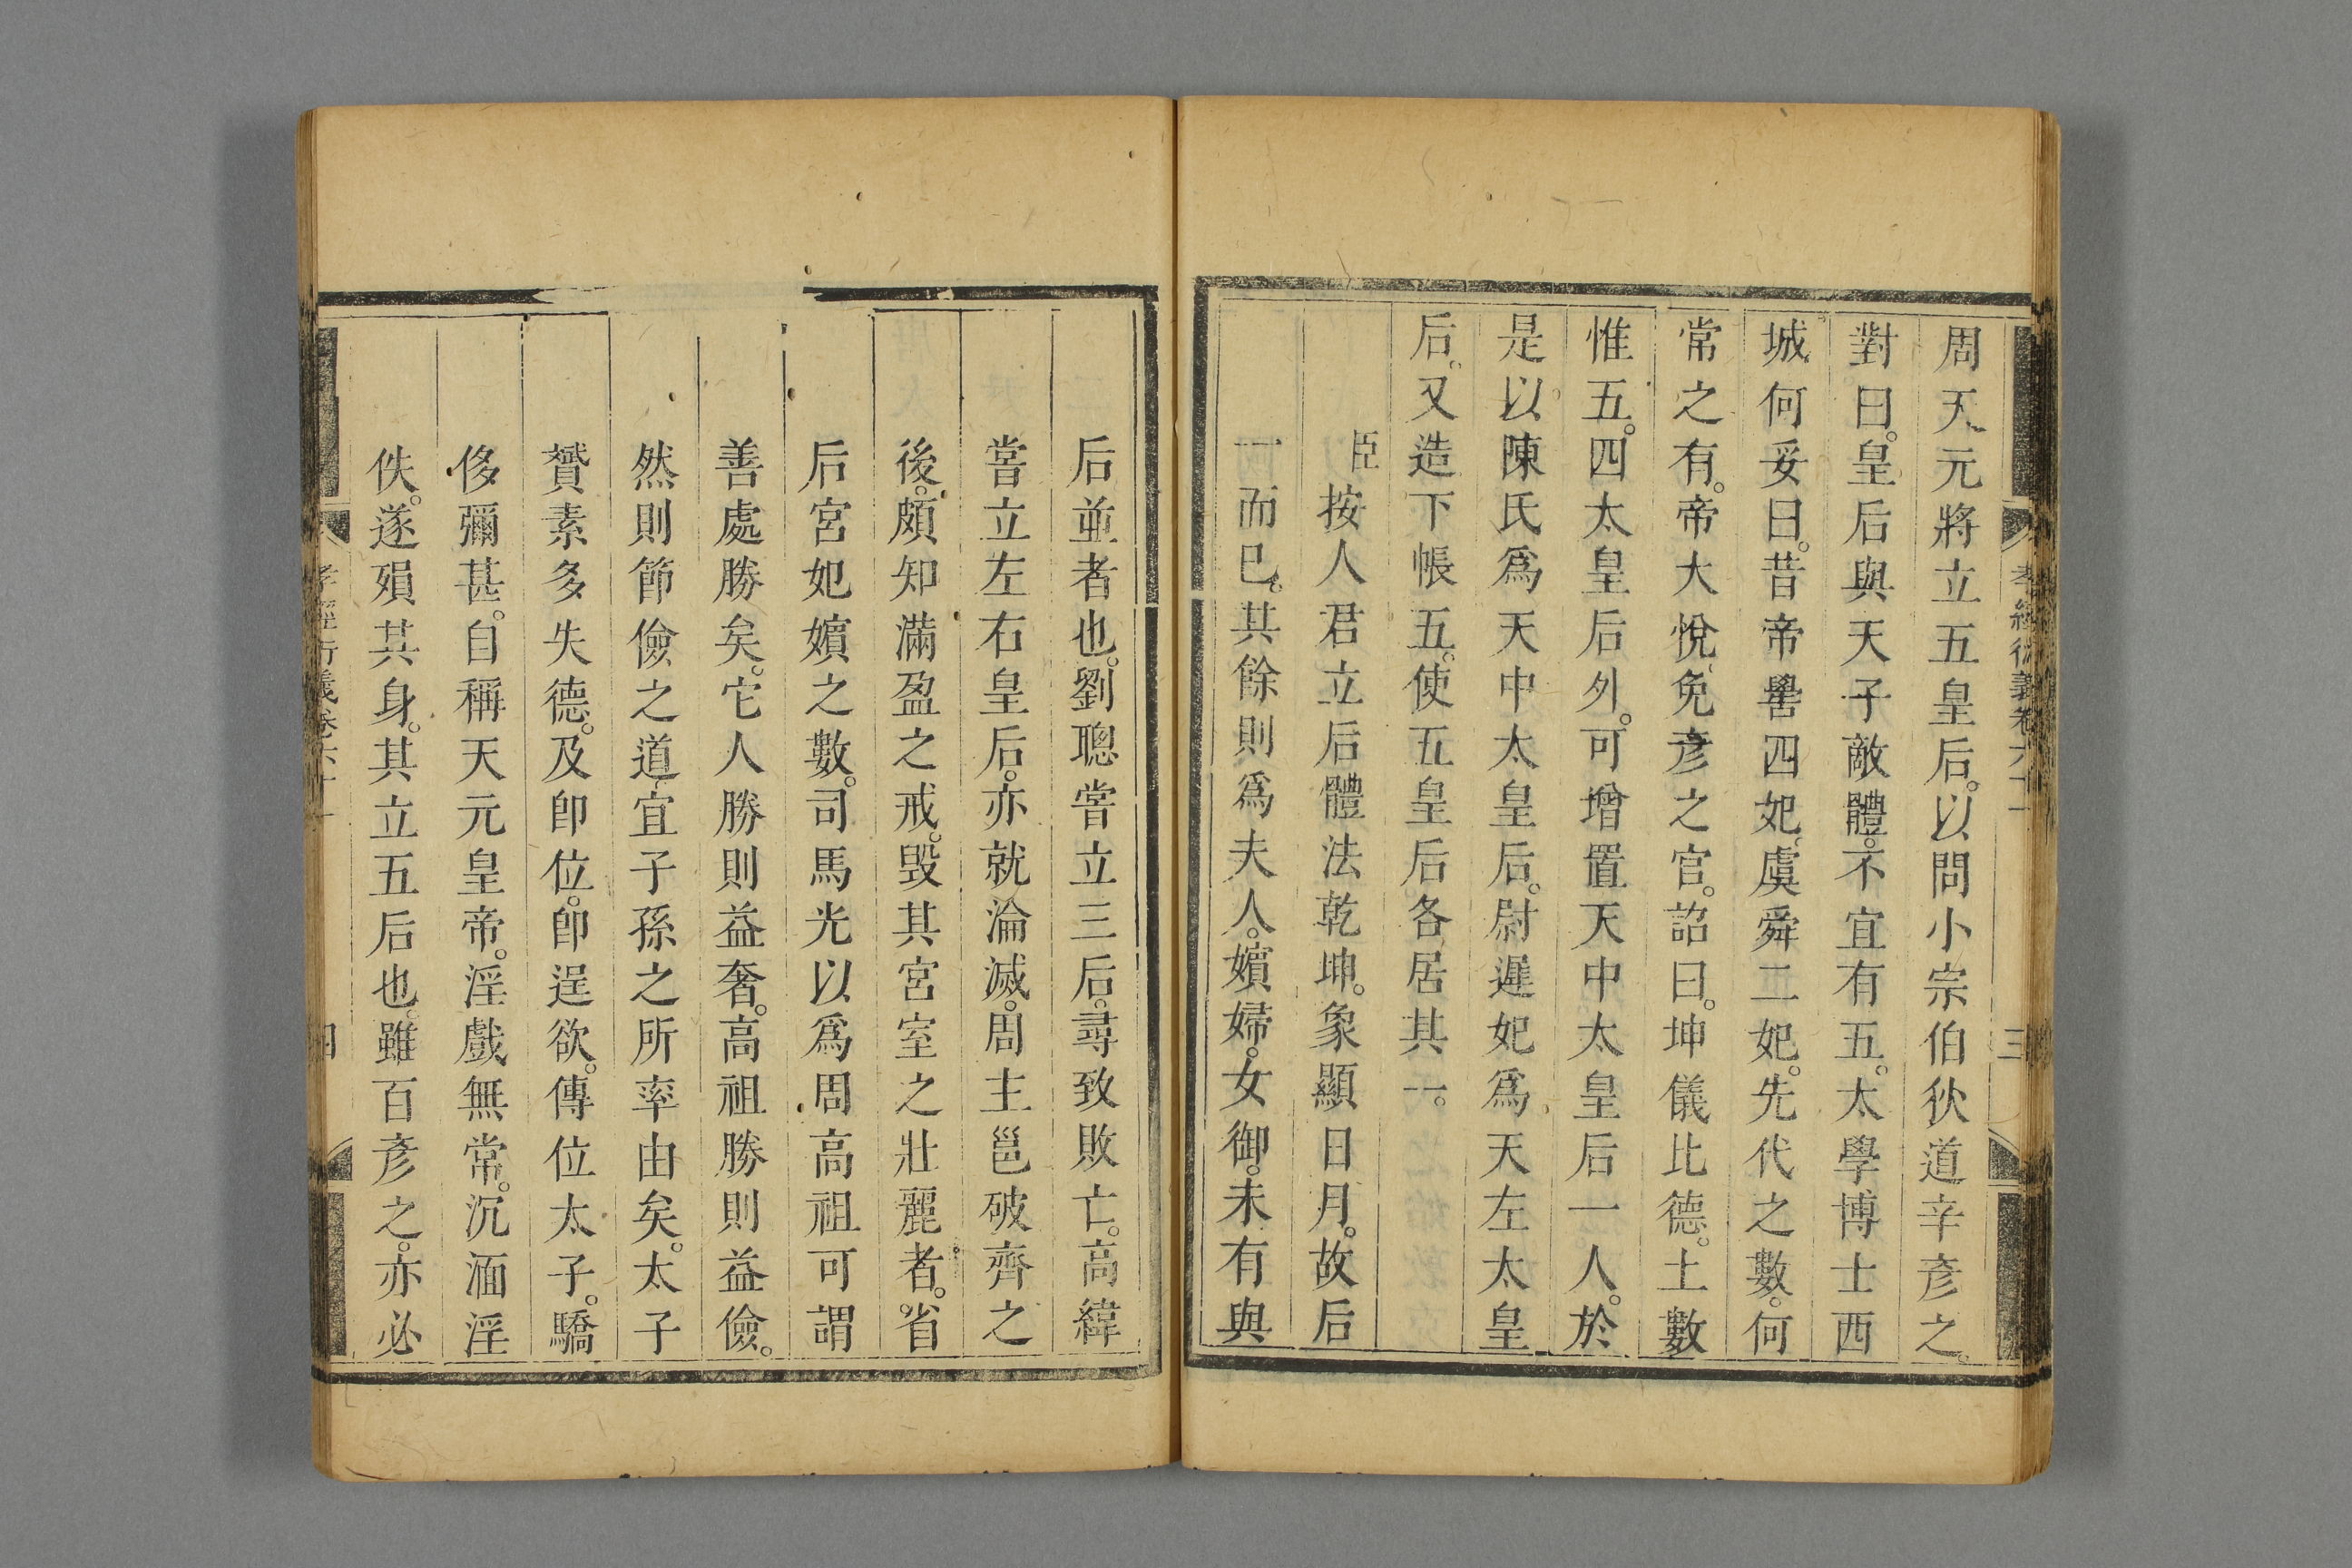 孝經衍義卷六十一 三
周天元將立五皇后。以問小宗伯狄道辛彥之。
對曰。皇后與天子敵體。不宜有五。太學博士西
城何妥曰。昔帝嚳四妃。虞舜二妃。先代之數。何
常之有。帝大悅。免彥之官。詔曰。坤儀比德。土數
惟五。四太皇后外。可增置天中太皇后一人。於
是以陳氏爲天中太皇后。尉遲妃爲天左太皇
后。又造下帳五。使五皇后各居其一。
臣按人君立后體法乾坤。象顯日月。故后
一而已。其餘則爲夫人。嬪婦。女御。未有與
后並者也。劉聰嘗立三后。尋致敗亡。高緯
嘗立左右皇后。亦就淪滅。周主邕破齊之
後。頗知滿盈之戒。毀其宮室之壯麗者。省
后宮妃嬪之數。司馬光以爲周高祖可謂
善處勝矣。它人勝則益奢。高祖勝則益儉。
然則節儉之道。宜子孫之所率由矣。太子
贇素多失德。及卽位。卽逞欲。傳位太子。驕
侈彌甚。自稱天元皇帝。淫戲無常。沉湎淫
佚。遂殞其身。其立五后也。雖百彥之。亦必
孝經衍義卷六十一 四